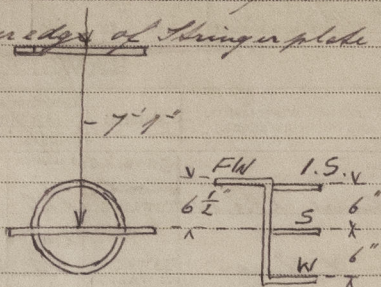 edge of Stringer plate
7'-1"
FW I.S.
6½" 6"
S
6"
W